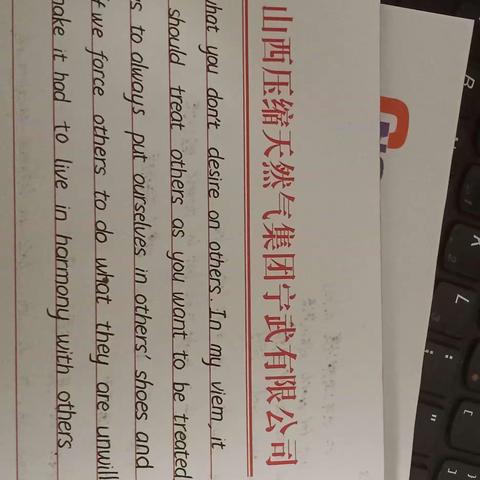 山西压缩天然气集团宁武有限公司
hat you don't desire on others. In my viem, it
should treat others as you want to be treated
s to always put ourselves in others' shoes and
f we force others to do what they are unwill
make it had to live in harmony with others